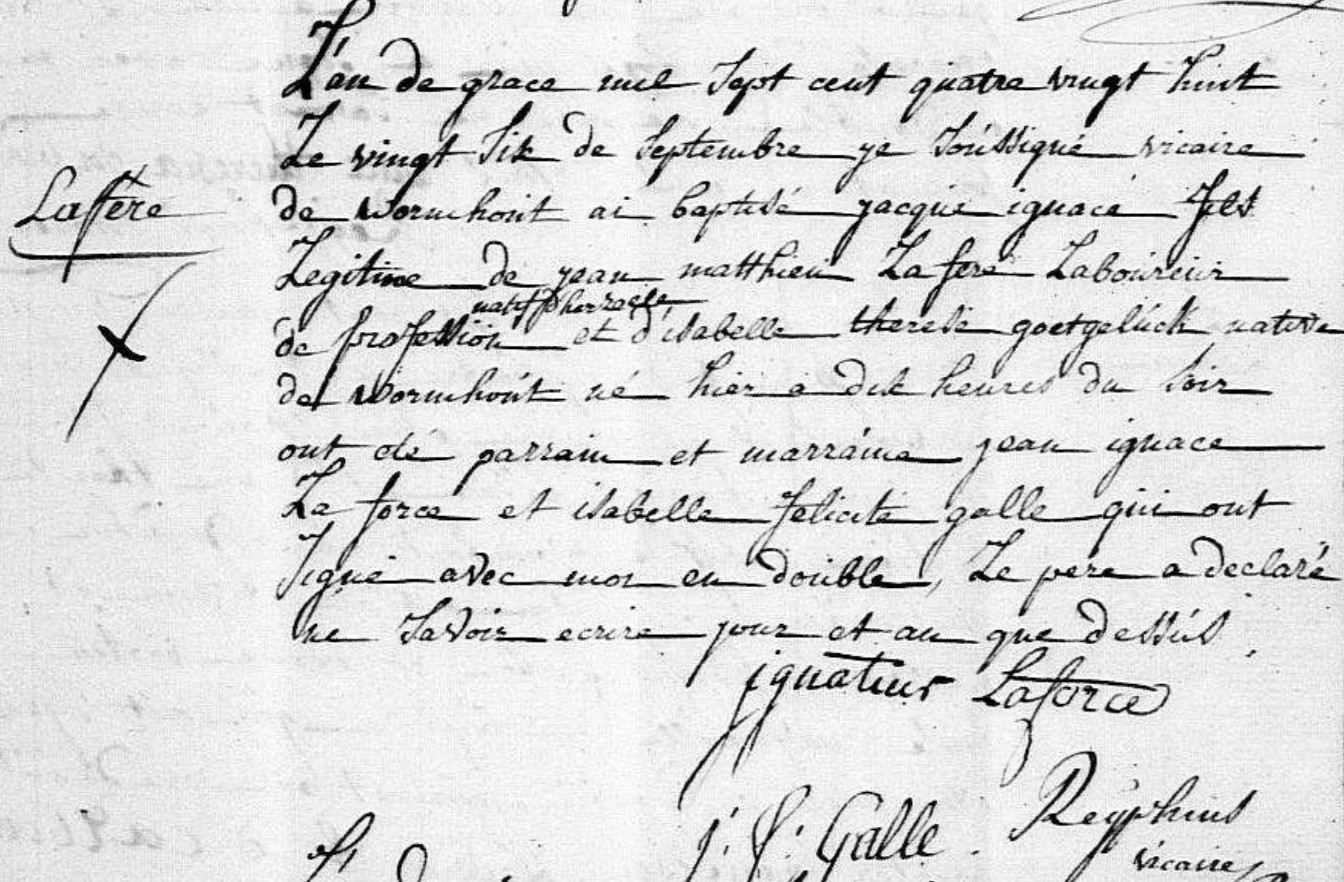 L'an de grace mil sept cent quatre vingt huit
Le vingt six de septembre ye soussigné vicaire
Lafere
de wormhout ai baptisé yacque ignace fils
Legitime de yean matthieu La fere Laboureur
natif d'herzeele
de profession et d'isabelle therese goetgeluck native
de wormhout né hier a dix heures du soir
ont été parrain et marraine jean ignace
La force et isabelle felicité galle qui ont
signé avec moi en double, Le pere a declaré
ne savoir ecrire jour et an que dessus.
ignatius Laforce
j: f: Galle
Reyphins
vicaire